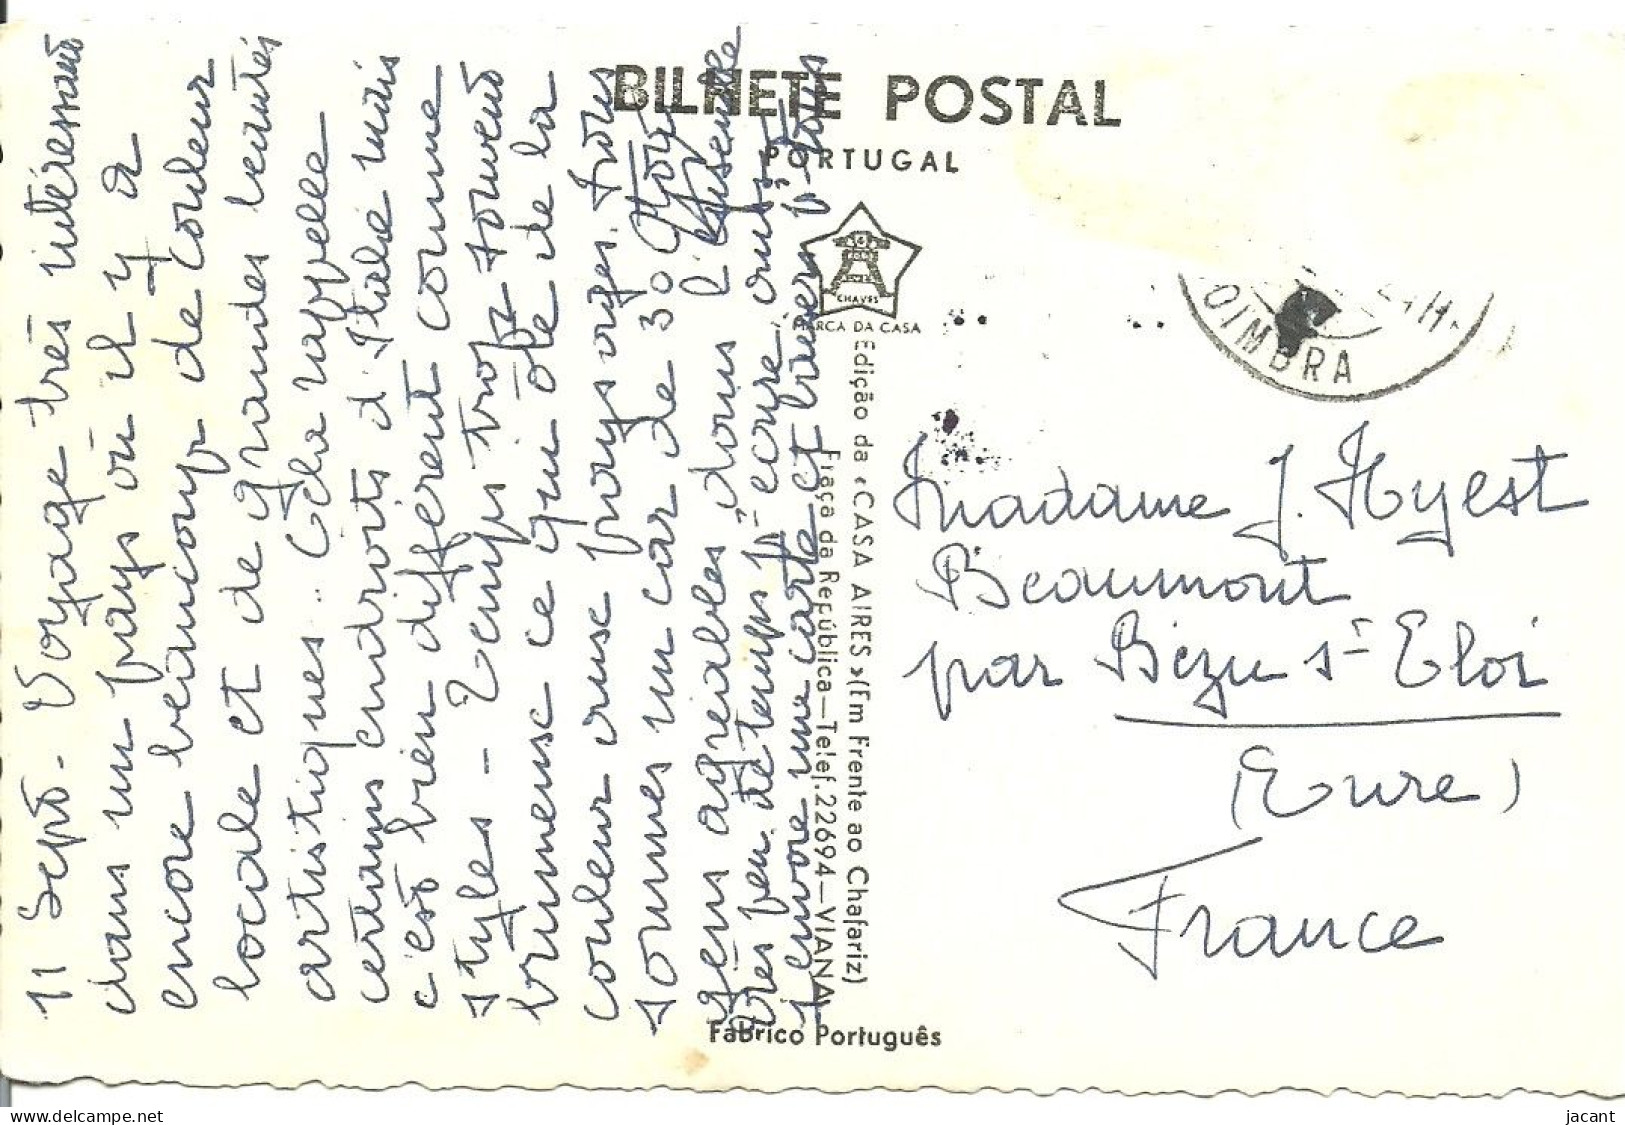 BILHETE POSTAL
PORTUGAL
CHAVES
MARCA DA CASA
Edição da «CASA AIRES» (Em Frente ao Chafariz)
da República—Telef. 22694—VIANA
Fabrico Português
OIMBRA
11 Sept. Voyage très intéressant
dans un pays où il y a
encore beaucoup de couleur
locale et de grandes beautés
artistiques.. Cela rappelle
certains endroits d'Italie mais
c'est bien différent comme
styles - Temps trop souvent
brumeux ce qui ôte de la
couleur aux paysages. Nous
sommes un car de 30
gens agréables dans l'ensemble
très peu de temps pr écrire
carte et
Madame J. Hyest
Beaumont
par Bézu St Eloi
(Eure)
France
delcampe.net
jacant